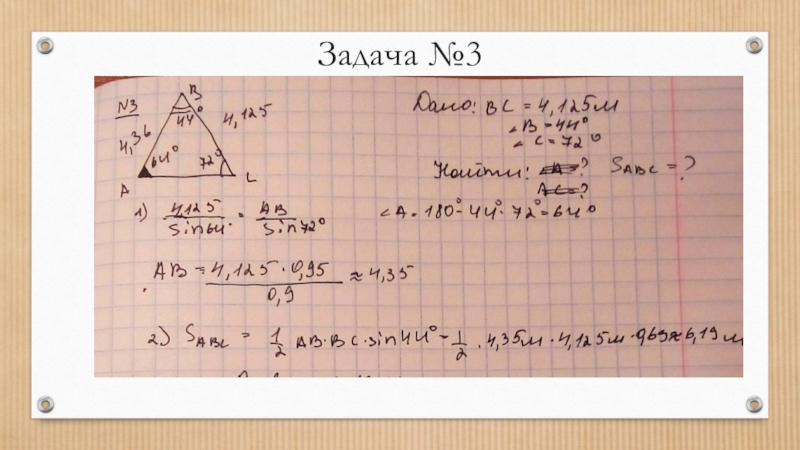 Задача №3
N3
B
44°
4,36
4,125
64°
72°
A
L
Дано: BC = 4,125м
∠B = 44°
∠C = 72°
Найти: ∠A = ? S_ABC = ?
AC = ?
1) 4,125/sin64° = AB/sin72°
∠A = 180° - 44° - 72° = 64°
AB = 4,125 · 0,95 / 0,9 ≈ 4,35
2) S_ABC = 1/2 AB · BC · sin44° = 1/2 · 4,35м · 4,125м · 0,69 ≈ 6,19 м